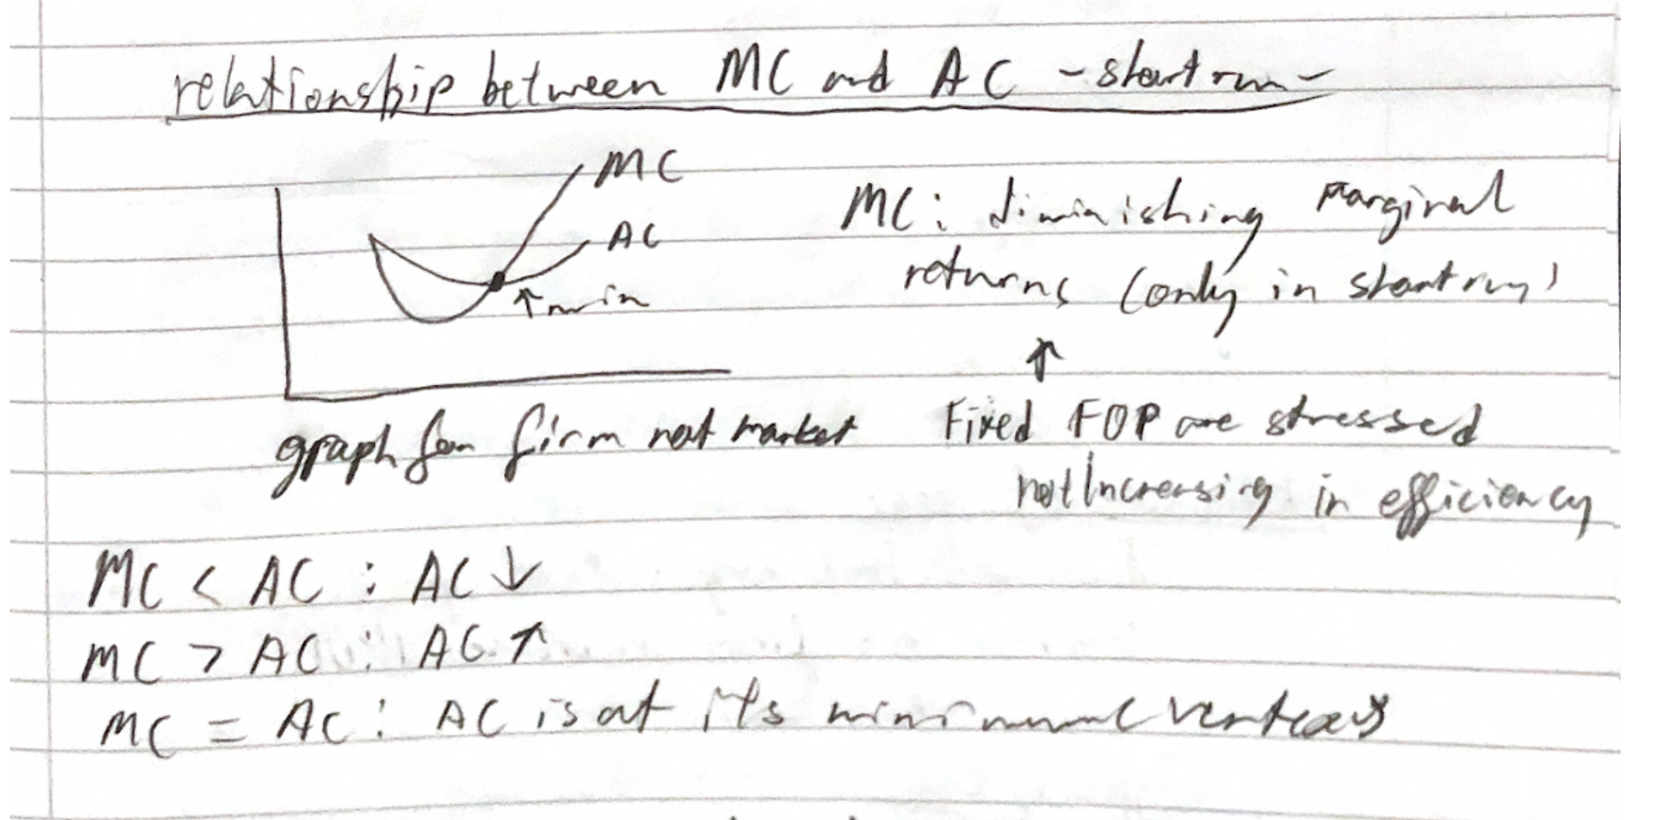 relationship between MC and AC - short run -
MC
AC
↑ min
MC: diminishing marginal
returns (only in short run)
↑
graph for firm not market
Fixed FOP are stressed
not increasing in efficiency
MC < AC : AC ↓
MC > AC : AC ↑
MC = AC : AC is at its minimum